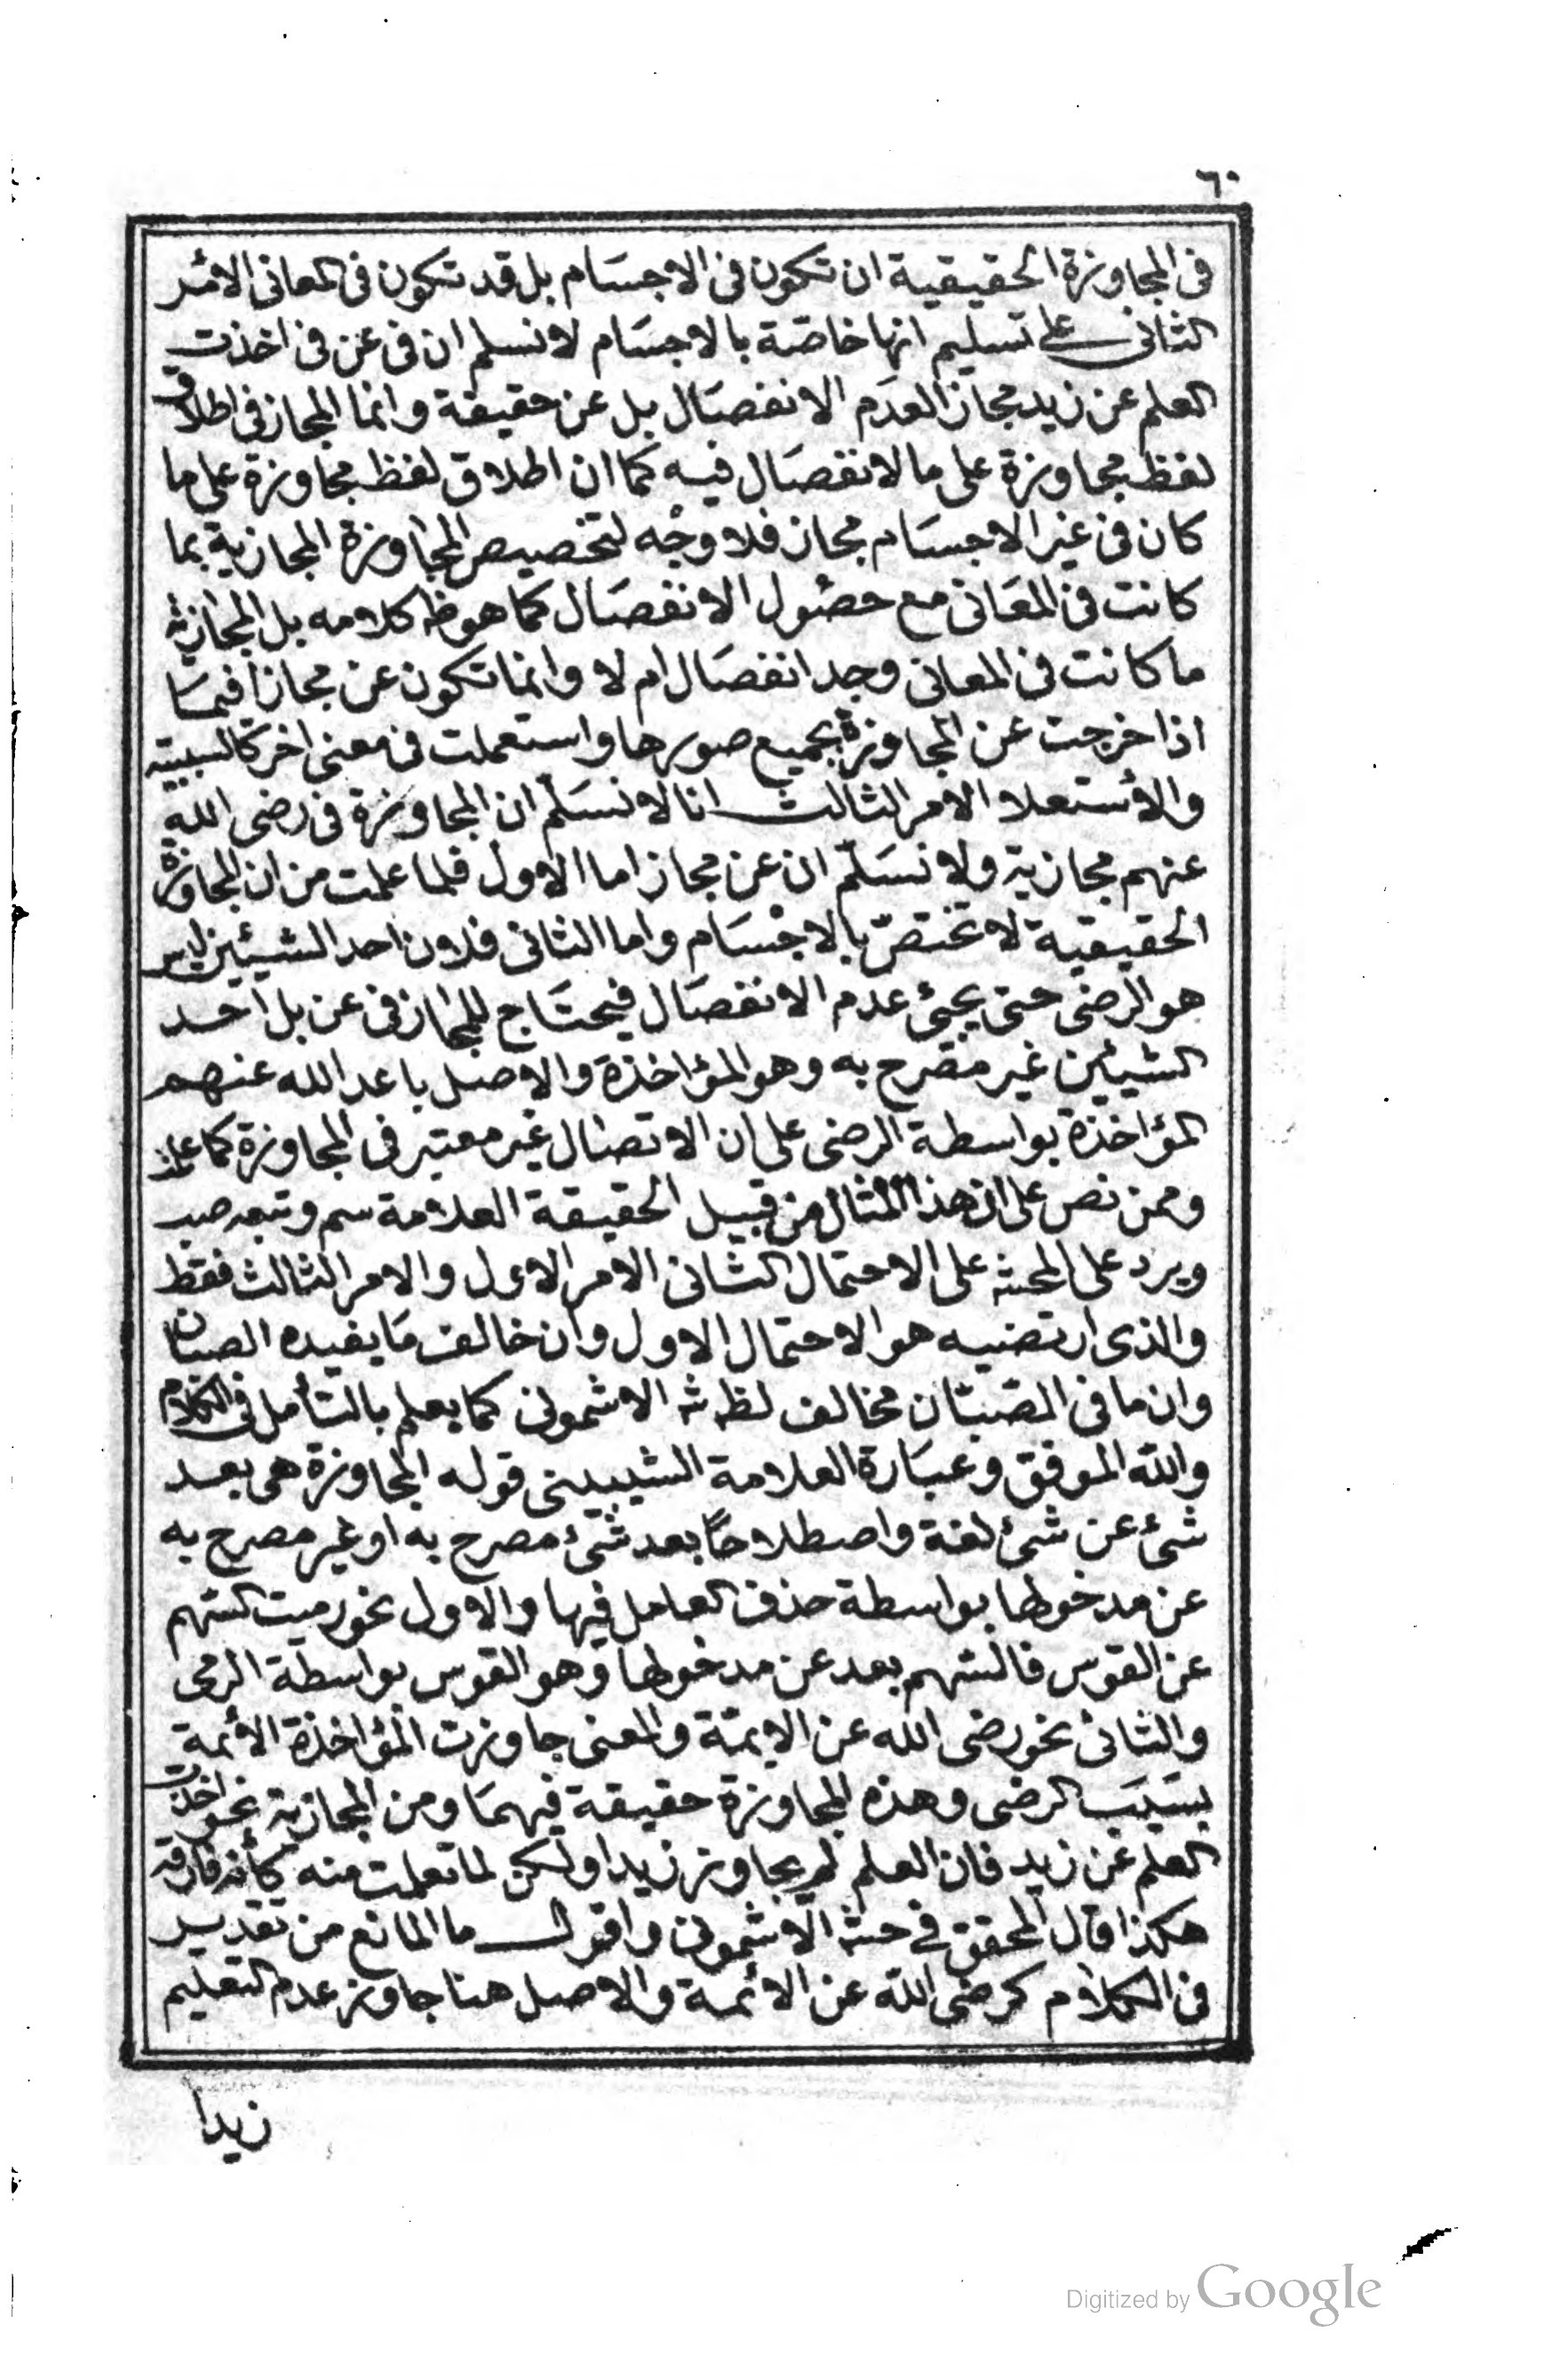 ٦٠
فى المجاوزة الحقيقية ان تكون فى الاجسام بل قد تكون فى المعانى الامر
الثانى على تسليم انها خاصة بالاجسام لانسلم ان فى عن فى اخذت
العلم عن زيد مجاز العدم الانفصال بل عن حقيقة وانما المجاز فى اطلاق
لفظ مجاوزة على ما لانفصال فيه كما ان اطلاق لفظ مجاوزة على ما
كان فى غير الاجسام مجاز فلا وجه لتخصيص المجاوزة المجازية بما
كانت فى المعانى مع حصول الانفصال كما هو ظ كلامه بل المجازية
ما كانت فى المعانى وجد انفصال ام لا وانما تكون عن مجازا فيما
اذا خرجت عن المجاوزة بجميع صورها واستعملت فى معنى اخر كالسببية
والاستعلا الامر الثالث انا لا نسلم ان المجاوزة فى رضى الله
عنهم مجازية ولا نسلم ان عن مجاز اما الاول فلما علمت من ان المجاوزة
الحقيقية لا تختص بالاجسام واما الثانى فلان احد الشيئين ليس
هو الرضى حتى يجيئ عدم الانفصال فيحتاج للمجاز فى عن بل احد
الشيئين غير مصرح به وهو المؤاخذة والاصل باعد الله عنهم
المؤاخذة بواسطة الرضى على ان الاتصال غير معتبر فى المجاوزة كما علمت
وممن نص على ان هذا المثال من قبيل الحقيقة العلامة سم وتبعه صب
ويرد على المحشى على الاحتمال الثانى الامر الاول والامر الثالث فقط
والذى ارتضيه هو الاحتمال الاول وان خالف ما يفيده الصبان
وان ما فى الصبان مخالف لظ ش الاشمونى كما يعلم بالتأمل فى الكلام
والله الموفق وعبارة العلامة الشيبينى قوله المجاوزة هى بعد
شئ عن شئ لغة واصطلاحا بعد شئ مصرح به او غير مصرح به
عن مدخولها بواسطة حذف العامل فيها والاول نحو رميت السهم
عن القوس فالسهم بعد عن مدخولها وهو القوس بواسطة الرمى
والثانى نحو رضى الله عن الايمة والمعنى جاوزت المؤاخذة الائمة
بسبب الرضى وهذه المجاوزة حقيقة فيهما ومن المجازية نحو اخذت
العلم عن زيد فان العلم لم يجاوز زيدا ولكن لما تعلمت منه كأنه فارقه
هكذا قال المحقق فى حشة الاشمونى واقول ما المانع من تقدير
فى الكلام كرضى الله عن الائمة والاصل هنا جاوز عدم التعليم
زيدا
Digitized by Google